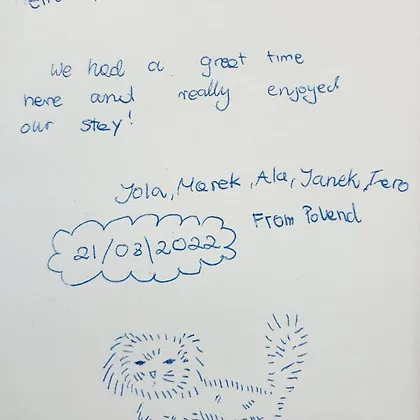 We had a great time
here and really enjoyed
our stay!
Jola, Marek, Ala, Janek, Fero
From Poland
21/03/2022